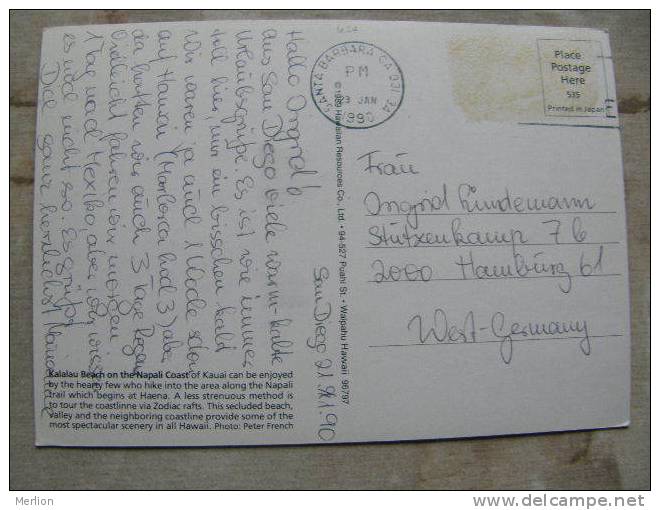 Hallo Ingrid!
Aus San Diego viele warm-kalte
Urlaubsgrüße. Es ist wie immer
toll hier, nur ein bisschen kalt.
Wir waren ja auch 1 Woche schon
auf Hawaii (Marlorca hoch 3) aber
da hatten wir auch 3 Tage Regen.
Vielleicht fahren wir morgen 1
Tag nach Mexiko, aber wir wissen
es noch nicht so. Es grüßt
Dich ganz herzlichst
San Diego 21.1.90
SANTA BARBARA CA 931 34
PM
23 JAN
1990
Place
Postage
Here
535
Printed in Japan
© 1989 Hawaiian Resources Co., Ltd. • 94-527 Puahi St. • Waipahu Hawaii 96797
Frau
Ingrid Lindemann
Stützenkamp 7b
2000 Hamburg 61
West-Germany
Kalalau Beach on the Napali Coast of Kauai can be enjoyed
by the hearty few who hike into the area along the Napali
trail which begins at Haena. A less strenuous method is
to tour the coastlinne via Zodiac rafts. This secluded beach,
valley and the neighboring coastline provide some of the
most spectacular scenery in all Hawaii. Photo: Peter French
Merlion
www.delcampe.net